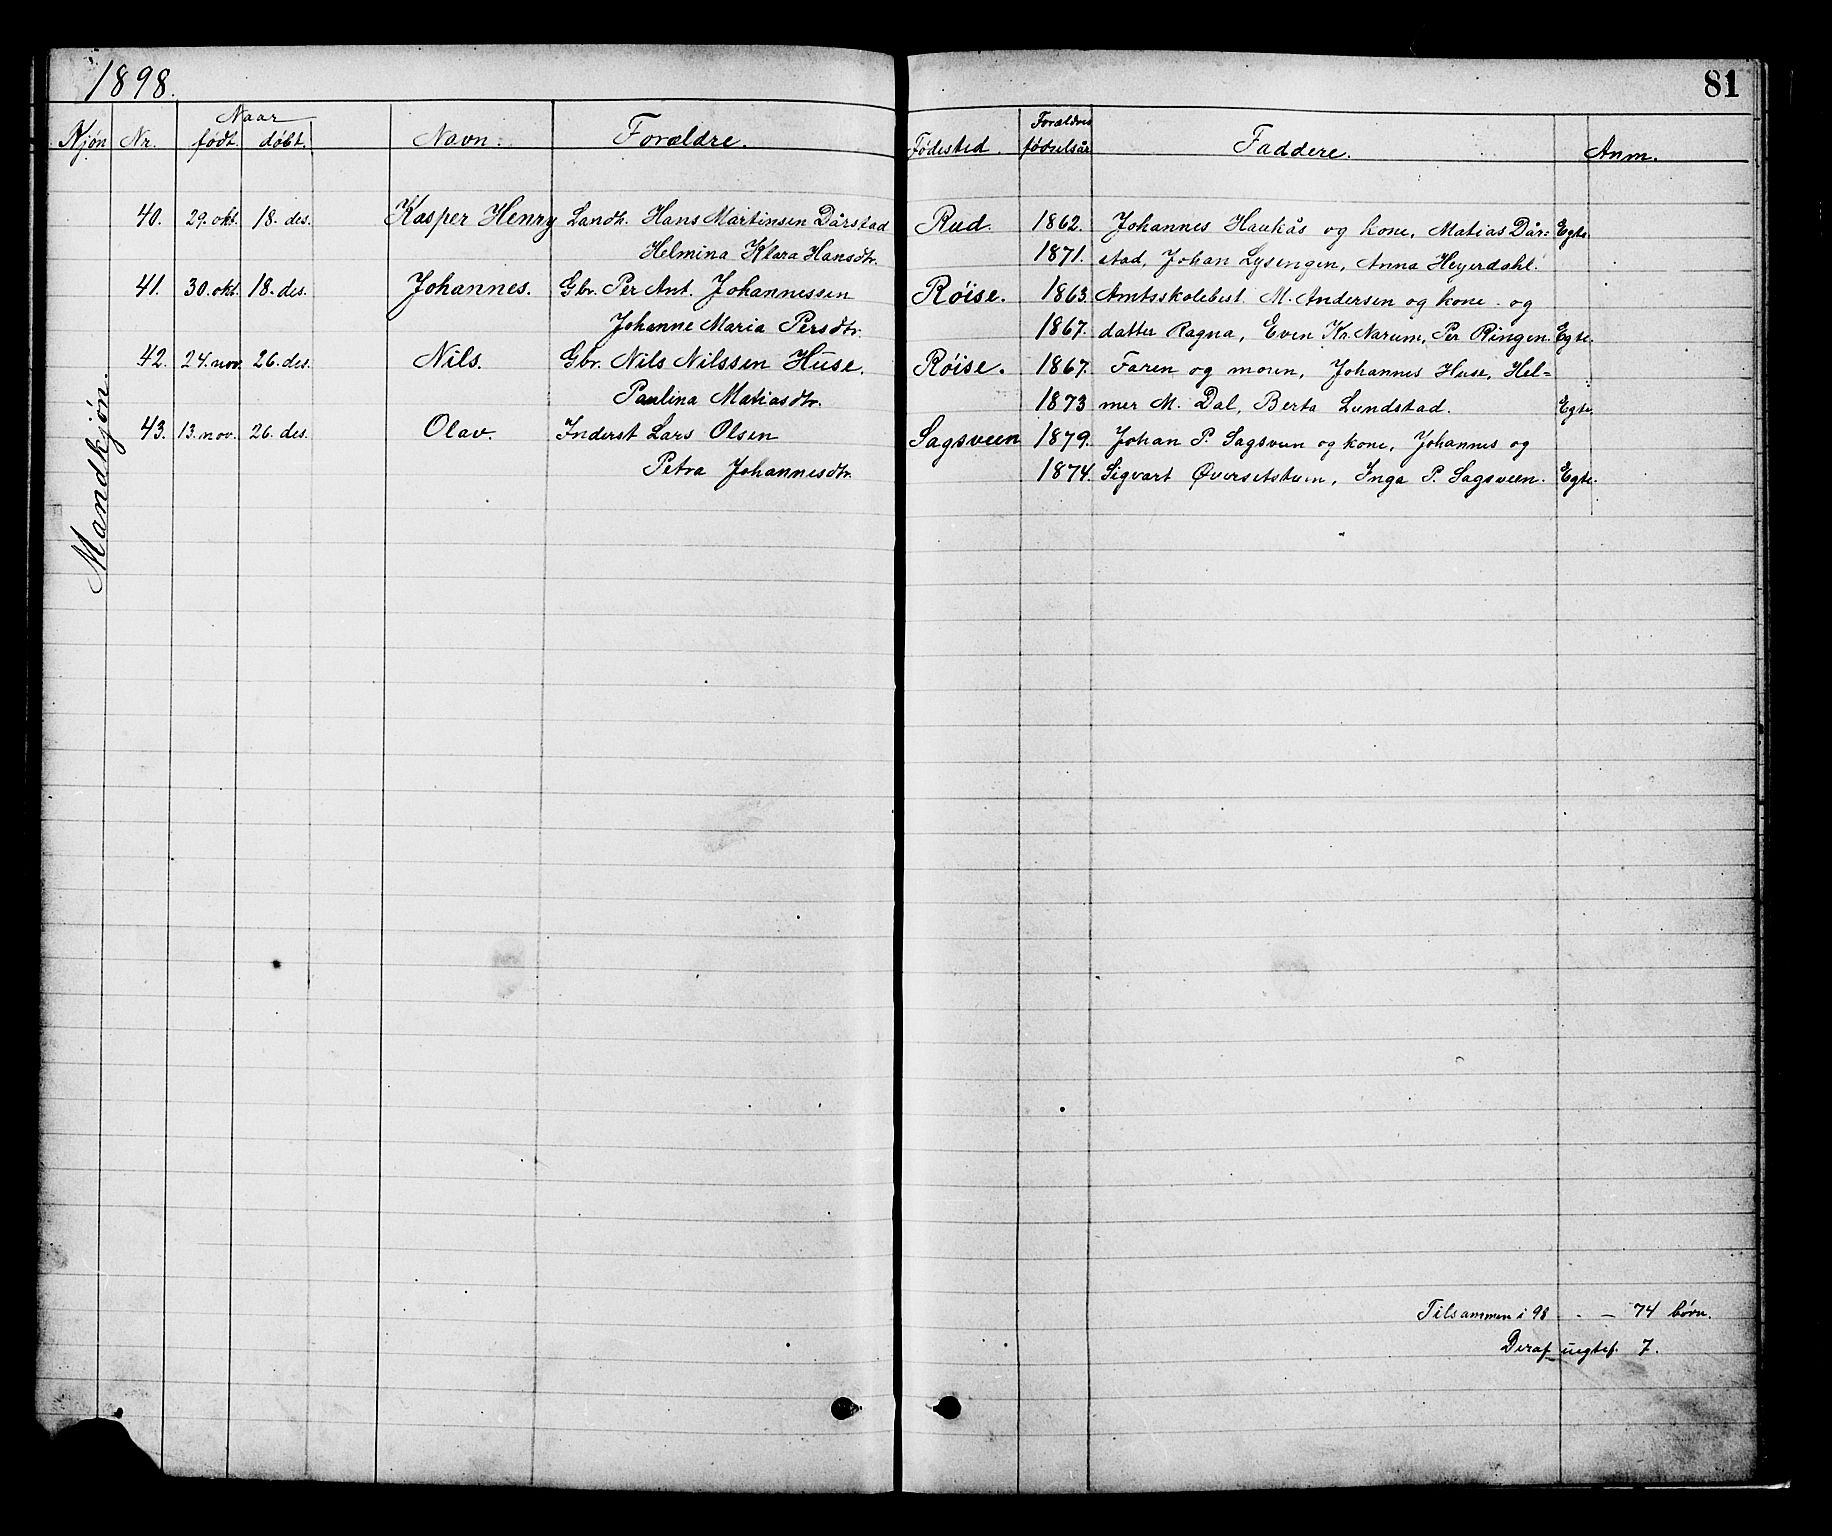 1898.
81
Naar
Forældres
Kjøn Nr. født. døbt. Navn. Forældre. Fødested. fødselsår Faddere. Anm.
40. 29. okt. 18. des. Kasper Henry Landh. Hans Martinsen Dårstad Rud. 1862. Johannes Haukås og kone, Matias Dår= Egte.
Helmina Klara Hansdtr. 1871. stad, Johan Lysengen, Anna Heyerdahl.
41. 30. okt. 18. des. Johannes. Gbr. Per Ant. Johannessen Røise. 1863. Amtsskolebest. M. Andersen og kone og
Johanne Maria Persdtr. 1867. datter Ragna, Even Kr. Narum, Per Ringen. Egte.
42. 24. nov. 26. des. Nils. Gbr. Nils Nilssen Huse. Røise. 1867. Faren og moren, Johannes Huse, Hel=
Paulina Matiasdtr. 1873 mer M. Dal, Berta Lundstad. Egte.
43. 13. nov. 26. des. Olav. Inderst Lars Olsen Sagsveen 1879. Johan P. Sagsveen og kone, Johannes og
Petra Johannesdtr. 1874. Sigvart Øversetstuen, Inga P. Sagsveen. Egte.
Mandkjøn.
Tilsammen i 98 - - 74 børn.
Deraf uegtef. 7.